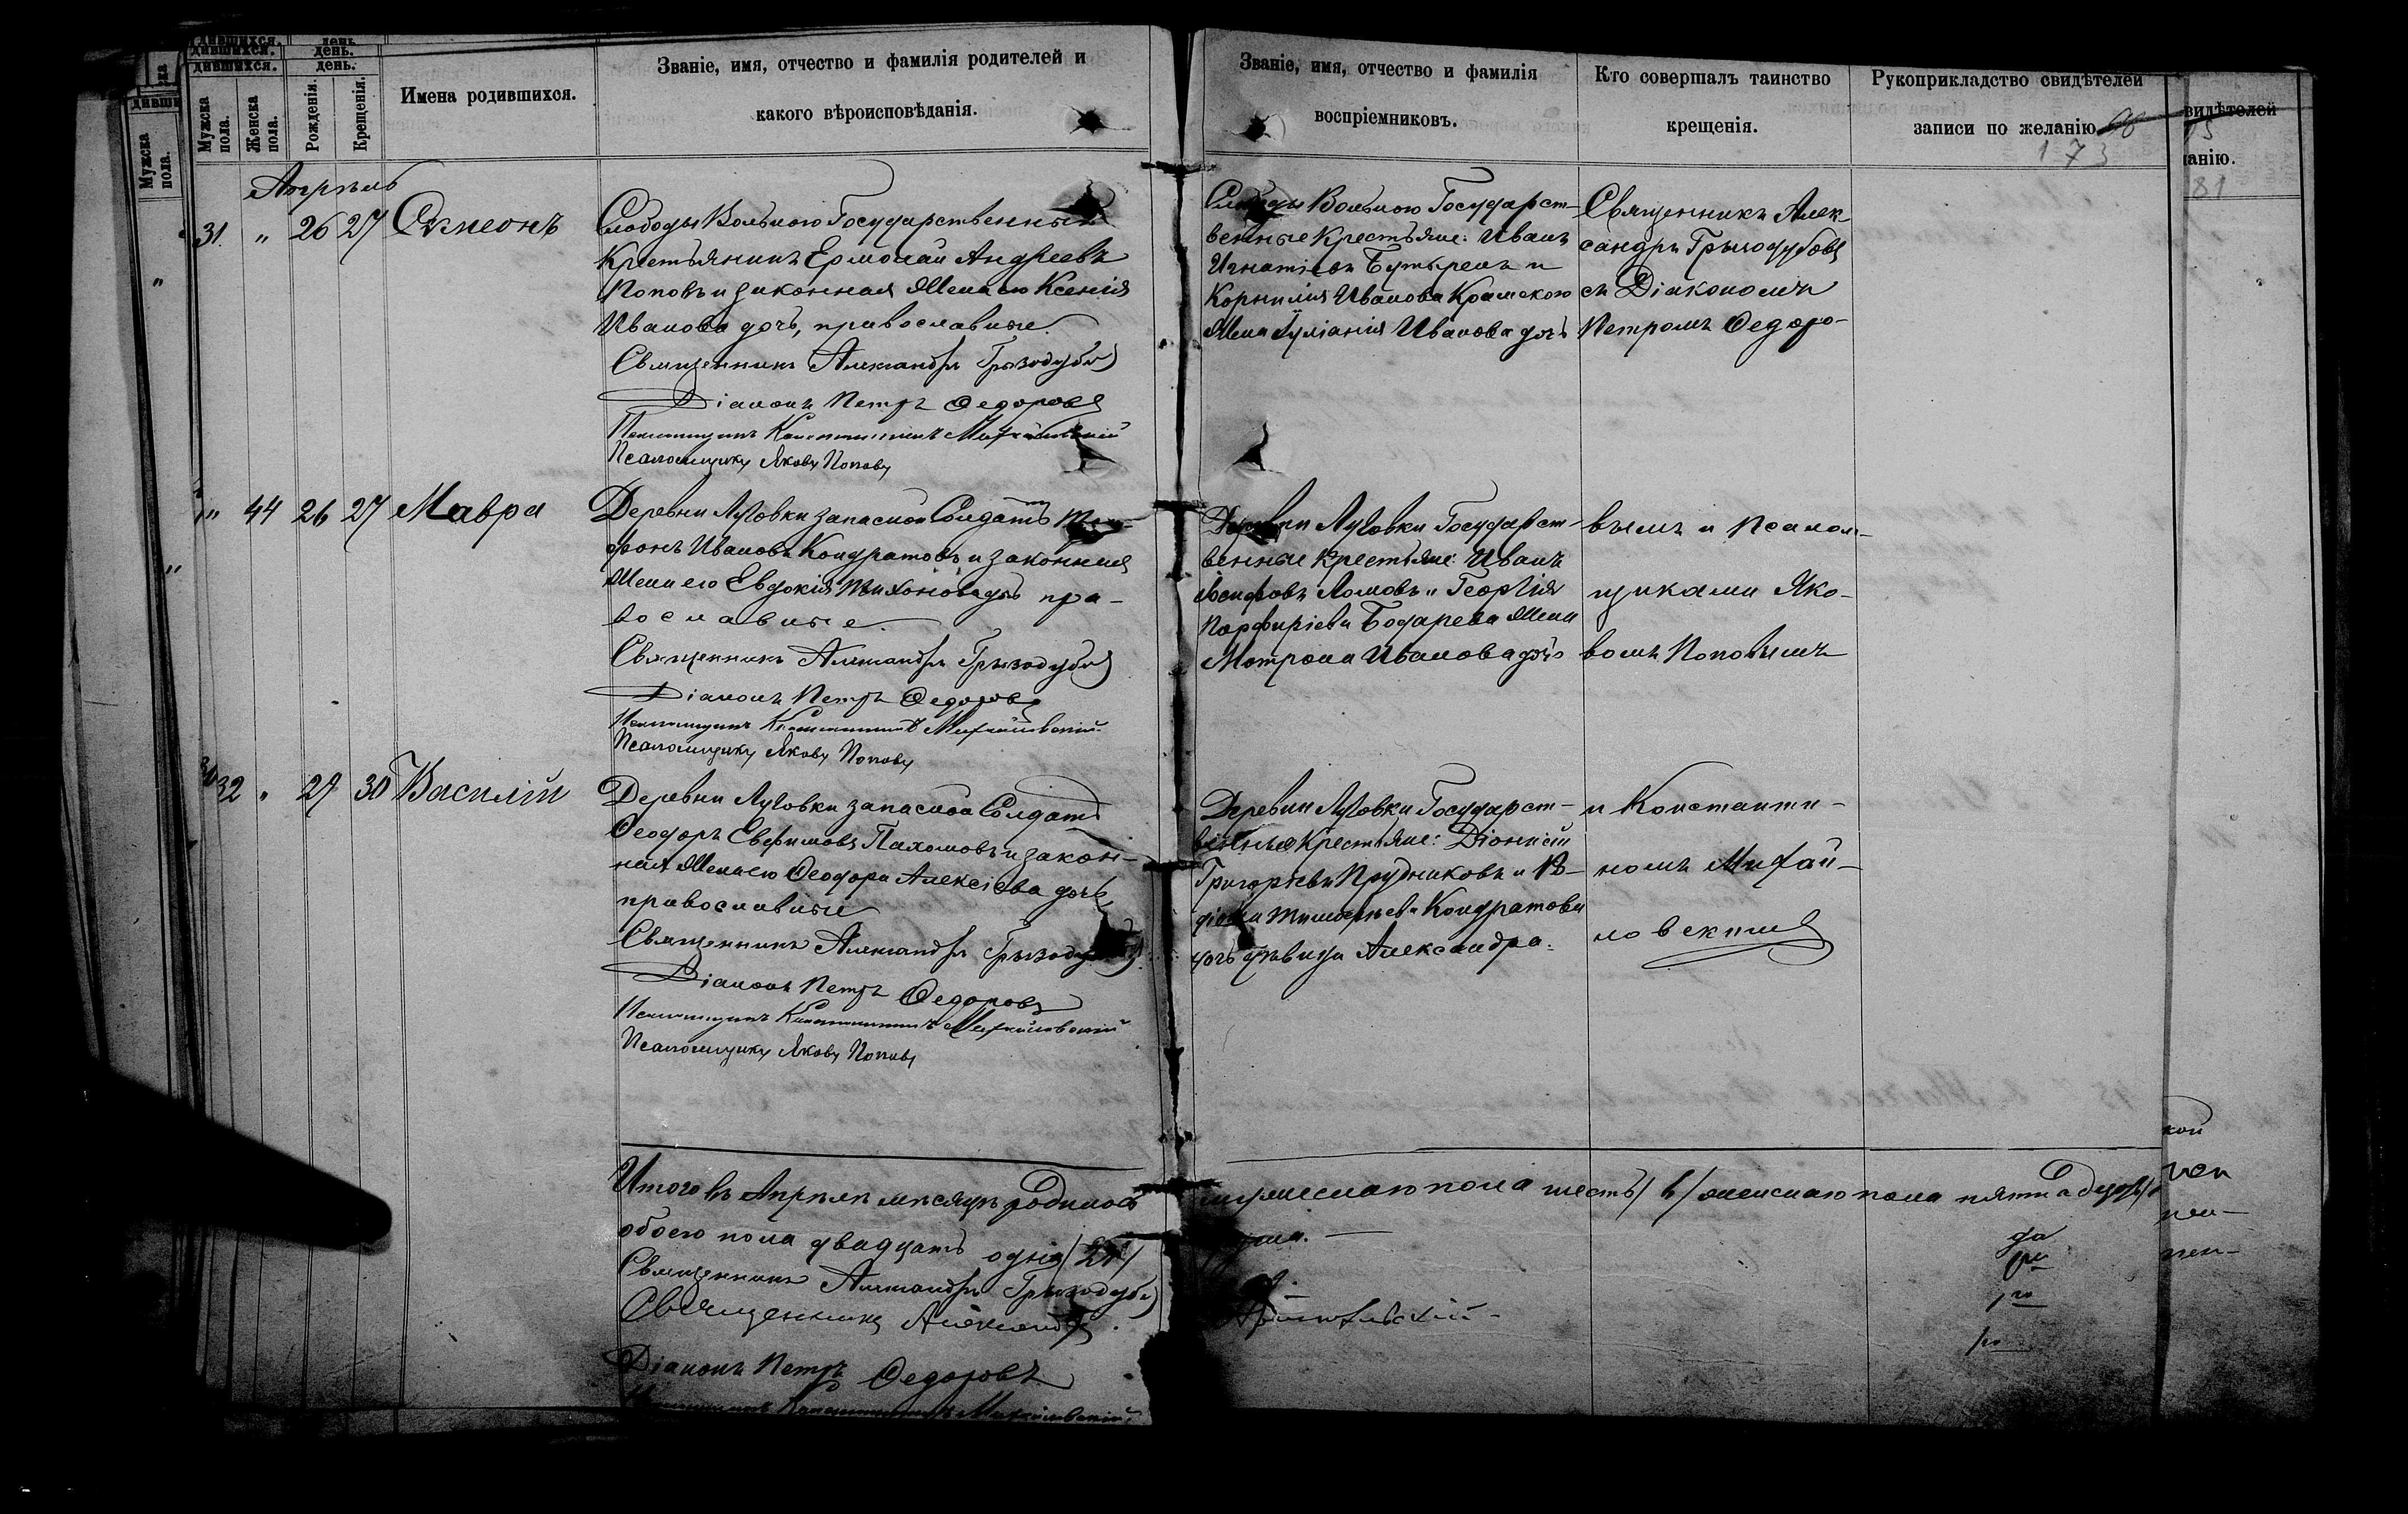 Мужска пола.
Женска пола.
Рожденія.
Крещенія.
Имена родившихся.
Званіе, имя, отчество и фамилія родителей и
какого вѣроисповѣданія.
Званіе, имя, отчество и фамилія
воспріемниковъ.
Кто совершалъ таинство
крещенія.
Рукоприкладство свидѣтелей
записи по желанію.
173
Апрѣль
31. " 26 27 Симеонъ
Слободы Вольною Государственный
Крестьянинъ Ермолай Андреевъ
Поповъ и законная жена его Ксенія
Иванова дочь, православные.
Священникъ Александръ Грызодубъ
Діаконъ Петръ Федоровъ
Псаломщикъ Константинъ Михайловскій
Псаломщикъ Яковъ Поповъ
Слободы Вольною Государст-
венные Крестьяне: Иванъ
Игнатіевъ Бутыревъ и
Корнилія Иванова Крамскою
жена Іуліанія Иванова дочь
Священникъ Алек-
сандръ Грызодубовъ
съ Діакономъ
Петромъ Федоро-
" 44 26 27 Мавра
Деревни Луговки запасной Солдатъ
Ивановъ Кондратовъ и законная
жена его Евдокія Тихонова дочь пра-
вославные.
Священникъ Александръ Грызодубъ
Діаконъ Петръ Федоровъ
Псаломщикъ Константинъ Михайловскій
Псаломщикъ Яковъ Поповъ
Деревни Луговки Государст-
венные Крестьяне: Иванъ
Іосифовъ Ломовъ и Георгія
Порфиріева Бодарева жена
Матрона Иванова дочь
вымъ и Псалом-
щиками Яко-
вомъ Поповымъ
32 " 27 30 Василій
Деревни Луговки запасной Солдатъ
Феодоръ Евфимовъ Пахомовъ и закон-
ная жена его Феодора Алексіева дочь
православные
Священникъ Александръ Грызодубъ
Діаконъ Петръ Федоровъ
Псаломщикъ Константинъ Михайловскій
Псаломщикъ Яковъ Поповъ
Деревни Луговки Государст-
венные Крестьяне: Діонисій
Григоріевъ Прудниковъ и
Кондратова
дочь дѣвица Александра.
и Константи-
номъ Михай-
ловскимъ
Итого въ Апрѣлѣ мѣсяцѣ родилось
мужескаго пола шесть /6/ женскаго пола пятнадцать
обоего пола двадцать одна /21/
Священникъ Александръ Грызодубъ
Священникъ Александръ
Діаконъ Петръ Федоровъ
Псаломщикъ Константинъ Михайловскій